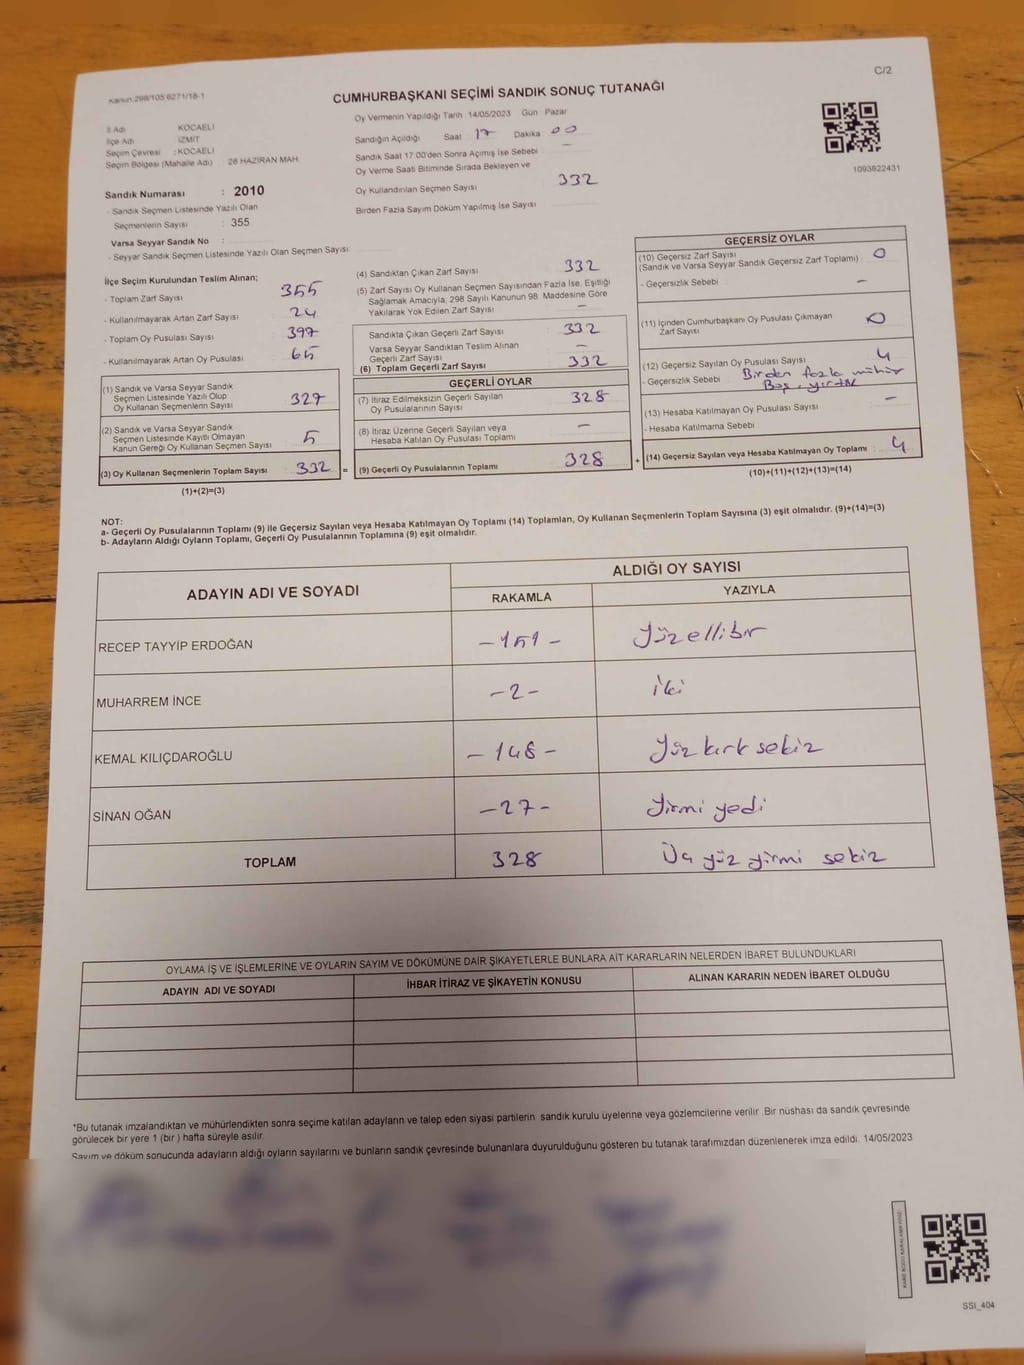 Kanun:298/105;6271/18-1
C/2
CUMHURBAŞKANI SEÇİMİ SANDIK SONUÇ TUTANAĞI
Oy Vermenin Yapıldığı Tarih 14/05/2023 Gün Pazar
İl Adı KOCAELİ
İlçe Adı İZMİT
Seçim Çevresi : KOCAELİ
Seçim Bölgesi (Mahalle Adı) 28 HAZİRAN MAH.
Sandığın Açıldığı Saat 17 Dakika 00
Sandık Saat 17.00'den Sonra Açılmış İse Sebebi —
Oy Verme Saati Bitiminde Sırada Bekleyen ve
Oy Kullandırılan Seçmen Sayısı 332
Birden Fazla Sayım Döküm Yapılmış İse Sayısı
1093822431
Sandık Numarası : 2010
- Sandık Seçmen Listesinde Yazılı Olan
Seçmenlerin Sayısı : 355
Varsa Seyyar Sandık No :
- Seyyar Sandık Seçmen Listesinde Yazılı Olan Seçmen Sayısı:
İlçe Seçim Kurulundan Teslim Alınan;
- Toplam Zarf Sayısı 355
- Kullanılmayarak Artan Zarf Sayısı 24
- Toplam Oy Pusulası Sayısı 397
- Kullanılmayarak Artan Oy Pusulası 65
(1) Sandık ve Varsa Seyyar Sandık
Seçmen Listesinde Yazılı Olup
Oy Kullanan Seçmenlerin Sayısı 327
(2) Sandık ve Varsa Seyyar Sandık
Seçmen Listesinde Kayıtlı Olmayan
Kanun Gereği Oy Kullanan Seçmen Sayısı 5
(3) Oy Kullanan Seçmenlerin Toplam Sayısı : 332 =
(1)+(2)=(3)
(4) Sandıktan Çıkan Zarf Sayısı 332
(5) Zarf Sayısı Oy Kullanan Seçmen Sayısından Fazla İse, Eşitliği
Sağlamak Amacıyla, 298 Sayılı Kanunun 98. Maddesine Göre
Yakılarak Yok Edilen Zarf Sayısı : —
Sandıkta Çıkan Geçerli Zarf Sayısı 332
Varsa Seyyar Sandıktan Teslim Alınan
Geçerli Zarf Sayısı —
(6) Toplam Geçerli Zarf Sayısı 332
GEÇERLİ OYLAR
(7) İtiraz Edilmeksizin Geçerli Sayılan
Oy Pusulalarının Sayısı 328
(8) İtiraz Üzerine Geçerli Sayılan veya
Hesaba Katılan Oy Pusulası Toplamı —
(9) Geçerli Oy Pusulalarının Toplamı 328 +
GEÇERSİZ OYLAR
(10) Geçersiz Zarf Sayısı
(Sandık ve Varsa Seyyar Sandık Geçersiz Zarf Toplamı) : 0
- Geçersizlik Sebebi —
(11) İçinden Cumhurbaşkanı Oy Pusulası Çıkmayan
Zarf Sayısı 0
(12) Geçersiz Sayılan Oy Pusulası Sayısı 4
- Geçersizlik Sebebi : Birden fazla mühür
Boş, yırtık
(13) Hesaba Katılmayan Oy Pusulası Sayısı —
- Hesaba Katılmama Sebebi
(14) Geçersiz Sayılan veya Hesaba Katılmayan Oy Toplamı : 4
(10)+(11)+(12)+(13)=(14)
NOT:
a- Geçerli Oy Pusulalarının Toplamı (9) ile Geçersiz Sayılan veya Hesaba Katılmayan Oy Toplamı (14) Toplamları, Oy Kullanan Seçmenlerin Toplam Sayısına (3) eşit olmalıdır. (9)+(14)=(3)
b- Adayların Aldığı Oyların Toplamı, Geçerli Oy Pusulalarının Toplamına (9) eşit olmalıdır.
ADAYIN ADI VE SOYADI
ALDIĞI OY SAYISI
RAKAMLA YAZIYLA
RECEP TAYYİP ERDOĞAN -151- Yüzellibir
MUHARREM İNCE -2- iki
KEMAL KILIÇDAROĞLU -148- Yüz kırk sekiz
SİNAN OĞAN -27- Yirmi yedi
TOPLAM 328 Üç yüz yirmi sekiz
OYLAMA İŞ VE İŞLEMLERİNE VE OYLARIN SAYIM VE DÖKÜMÜNE DAİR ŞİKAYETLERLE BUNLARA AİT KARARLARIN NELERDEN İBARET BULUNDUKLARI
ADAYIN ADI VE SOYADI İHBAR İTİRAZ VE ŞİKAYETİN KONUSU ALINAN KARARIN NEDEN İBARET OLDUĞU
*Bu tutanak imzalandıktan ve mühürlendikten sonra seçime katılan adayların ve talep eden siyasi partilerin sandık kurulu üyelerine veya gözlemcilerine verilir. Bir nüshası da sandık çevresinde
görülecek bir yere 1 (bir) hafta süreyle asılır.
Sayım ve döküm sonucunda adayların aldığı oyların sayılarını ve bunların sandık çevresinde bulunanlara duyurulduğunu gösteren bu tutanak tarafımızdan düzenlenerek imza edildi. 14/05/2023
SSI_404